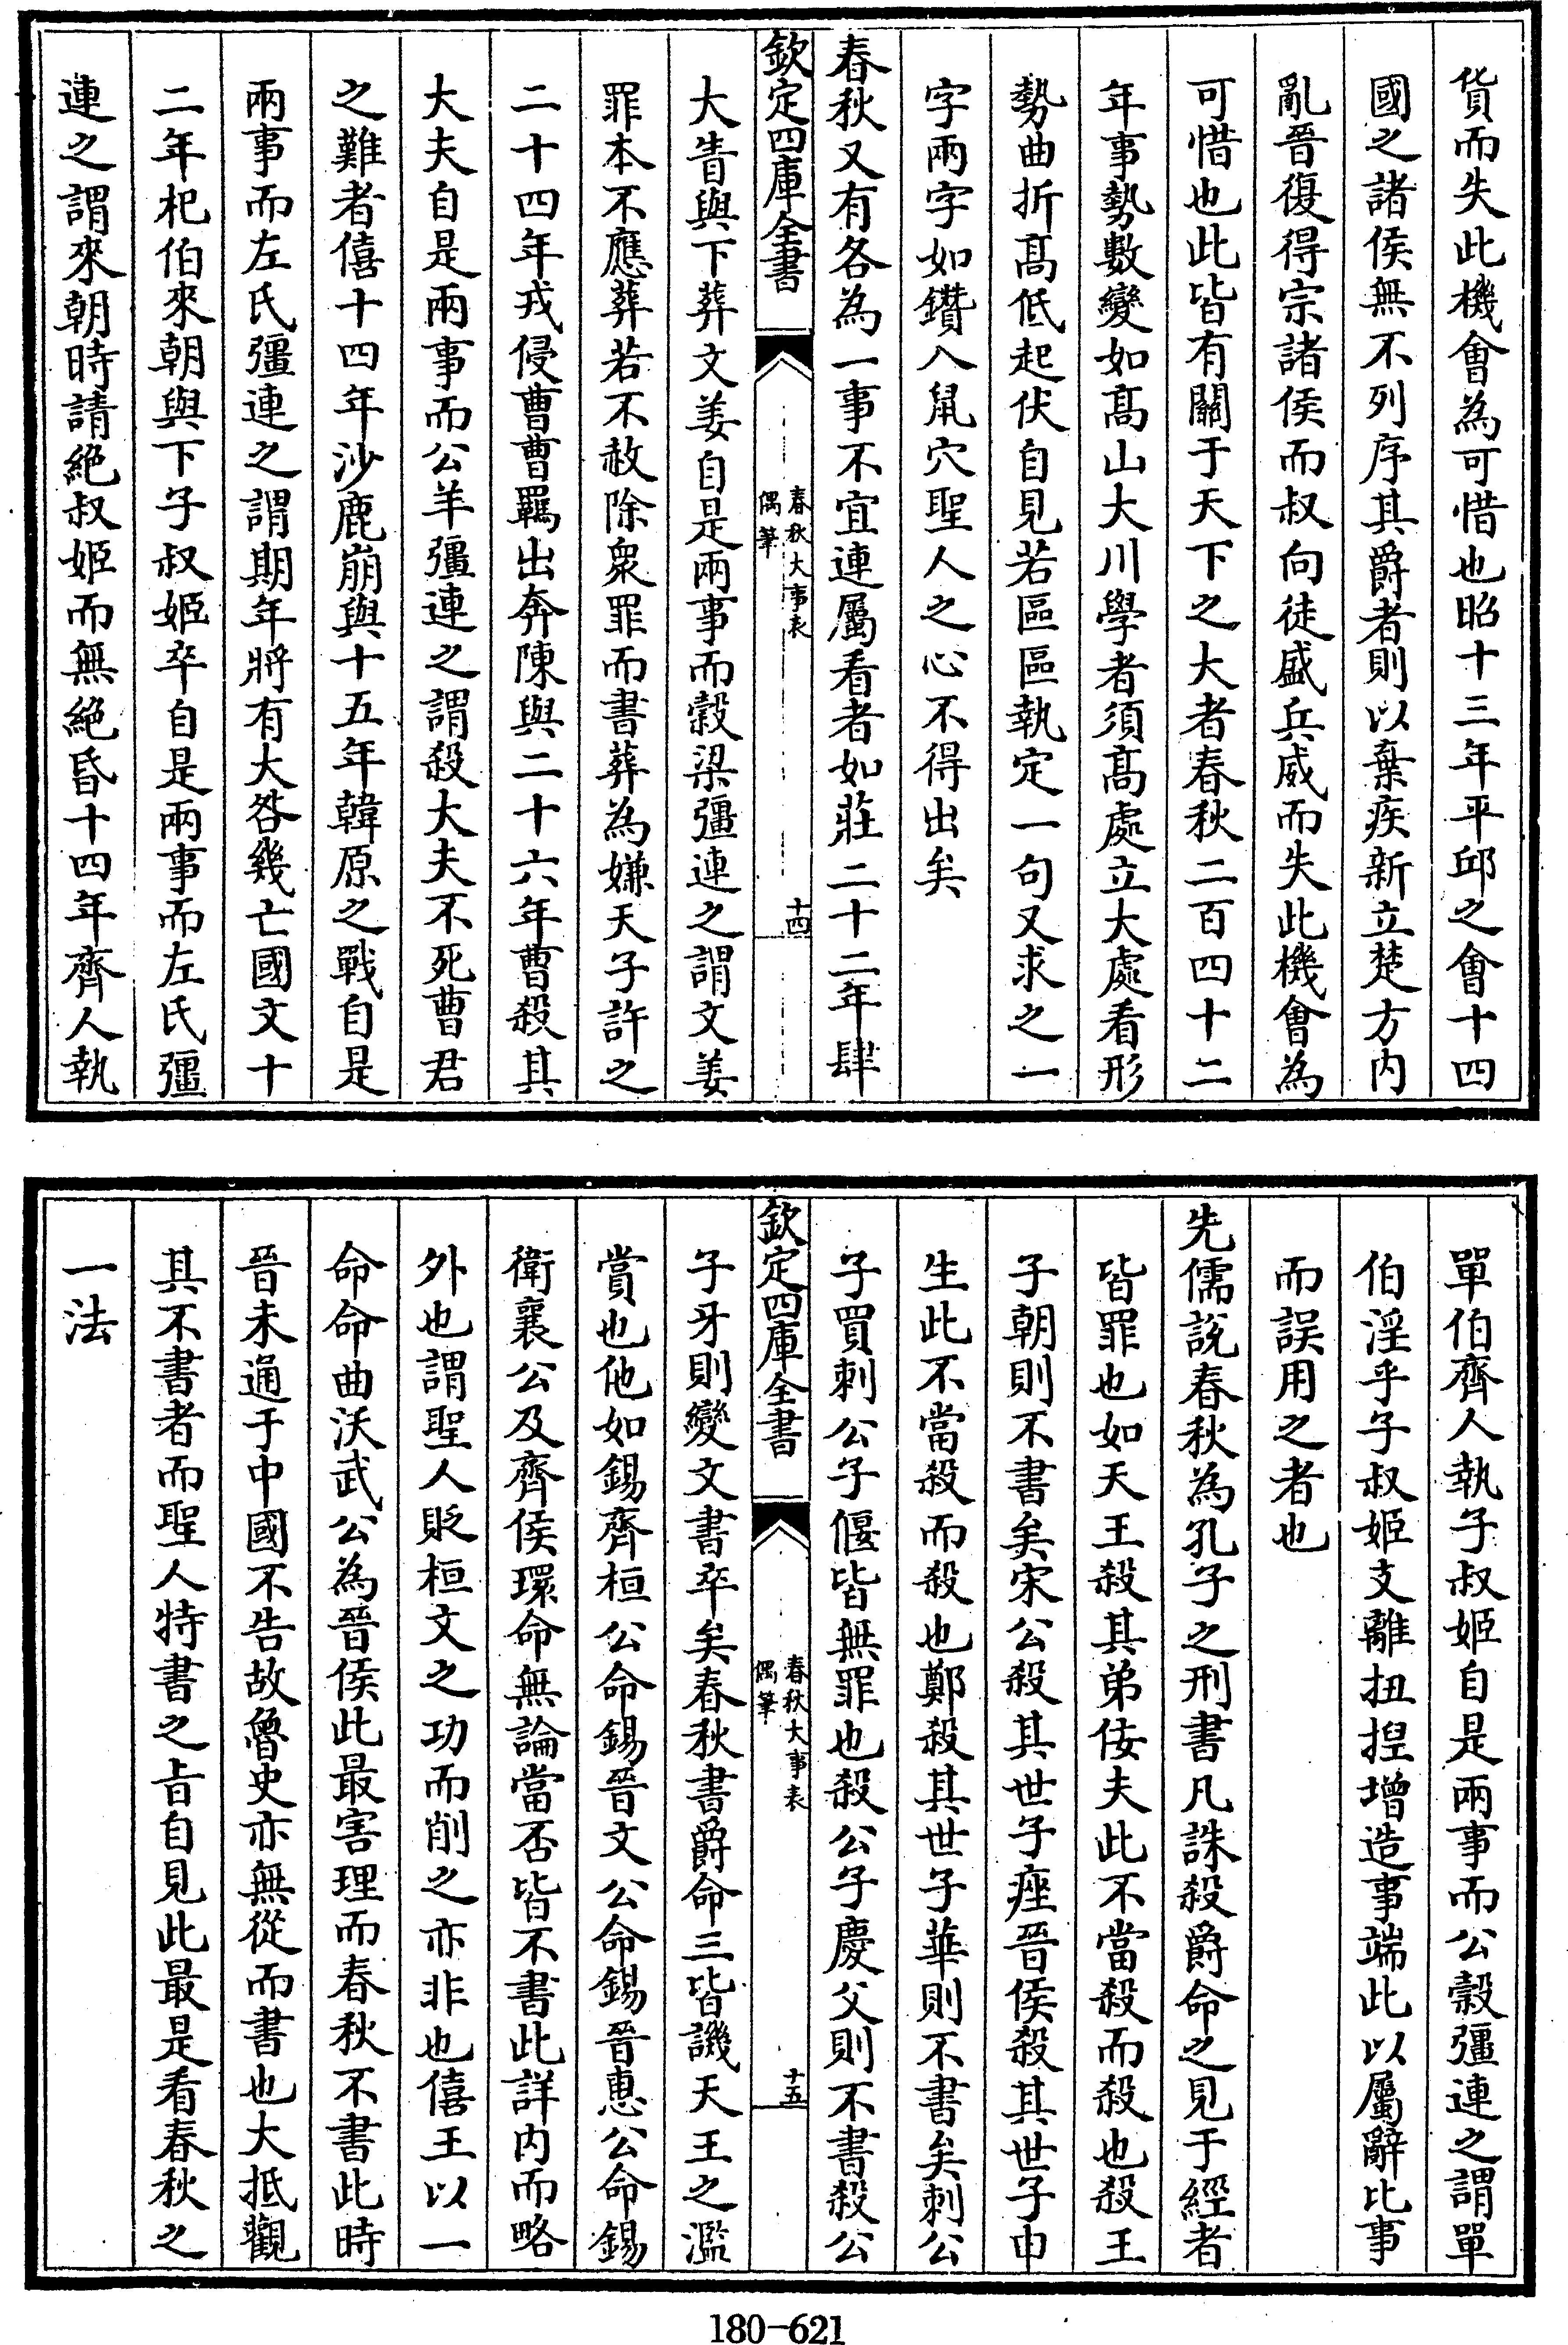 貨而失此機會為可惜也昭十三年平邱之會十四
國之諸侯無不列序其爵者則以棄疾新立楚方内
亂晉復得宗諸侯而叔向徒盛兵威而失此機會為
可惜也此皆有關于天下之大者春秋二百四十二
年事勢數變如髙山大川學者須髙處立大處看形
勢曲折髙低起伏自見若區區執定一句又求之一
字兩字如鑽入鼠穴聖人之心不得出矣
春秋又有各為一事不宜連屬看者如莊二十二年肆
欽定四庫全書
春秋大事表
偶筆
十四
大眚與下葬文姜自是兩事而穀梁彊連之謂文姜
罪本不應葬若不赦除衆罪而書葬為嫌天子許之
二十四年戎侵曹曹羈出奔陳與二十六年曹殺其
大夫自是兩事而公羊彊連之謂殺大夫不死曹君
之難者僖十四年沙鹿崩與十五年韓原之戰自是
兩事而左氏彊連之謂期年將有大咎幾亡國文十
二年杞伯來朝與下子叔姬卒自是兩事而左氏彊
連之謂來朝時請絶叔姬而無絶昏十四年齊人執
單伯齊人執子叔姬自是兩事而公穀彊連之謂單
伯淫乎子叔姬支離扭揑增造事端此以屬辭比事
而誤用之者也
先儒説春秋為孔子之刑書凡誅殺爵命之見于經者
皆罪也如天王殺其弟佞夫此不當殺而殺也殺王
子朝則不書矣宋公殺其世子痤晉侯殺其世子申
生此不當殺而殺也鄭殺其世子華則不書矣刺公
子買刺公子偃皆無罪也殺公子慶父則不書殺公
欽定四庫全書
春秋大事表
偶筆
十五
子牙則變文書卒矣春秋書爵命三皆譏天王之濫
賞也他如錫齊桓公命錫晉文公命錫晉惠公命錫
衛襄公及齊侯環命無論當否皆不書此詳内而略
外也謂聖人貶桓文之功而削之亦非也僖王以一
命命曲沃武公為晉侯此最害理而春秋不書此時
晉未通于中國不告故魯史亦無從而書也大抵觀
其不書者而聖人特書之㫖自見此最是看春秋之
一法
180-621